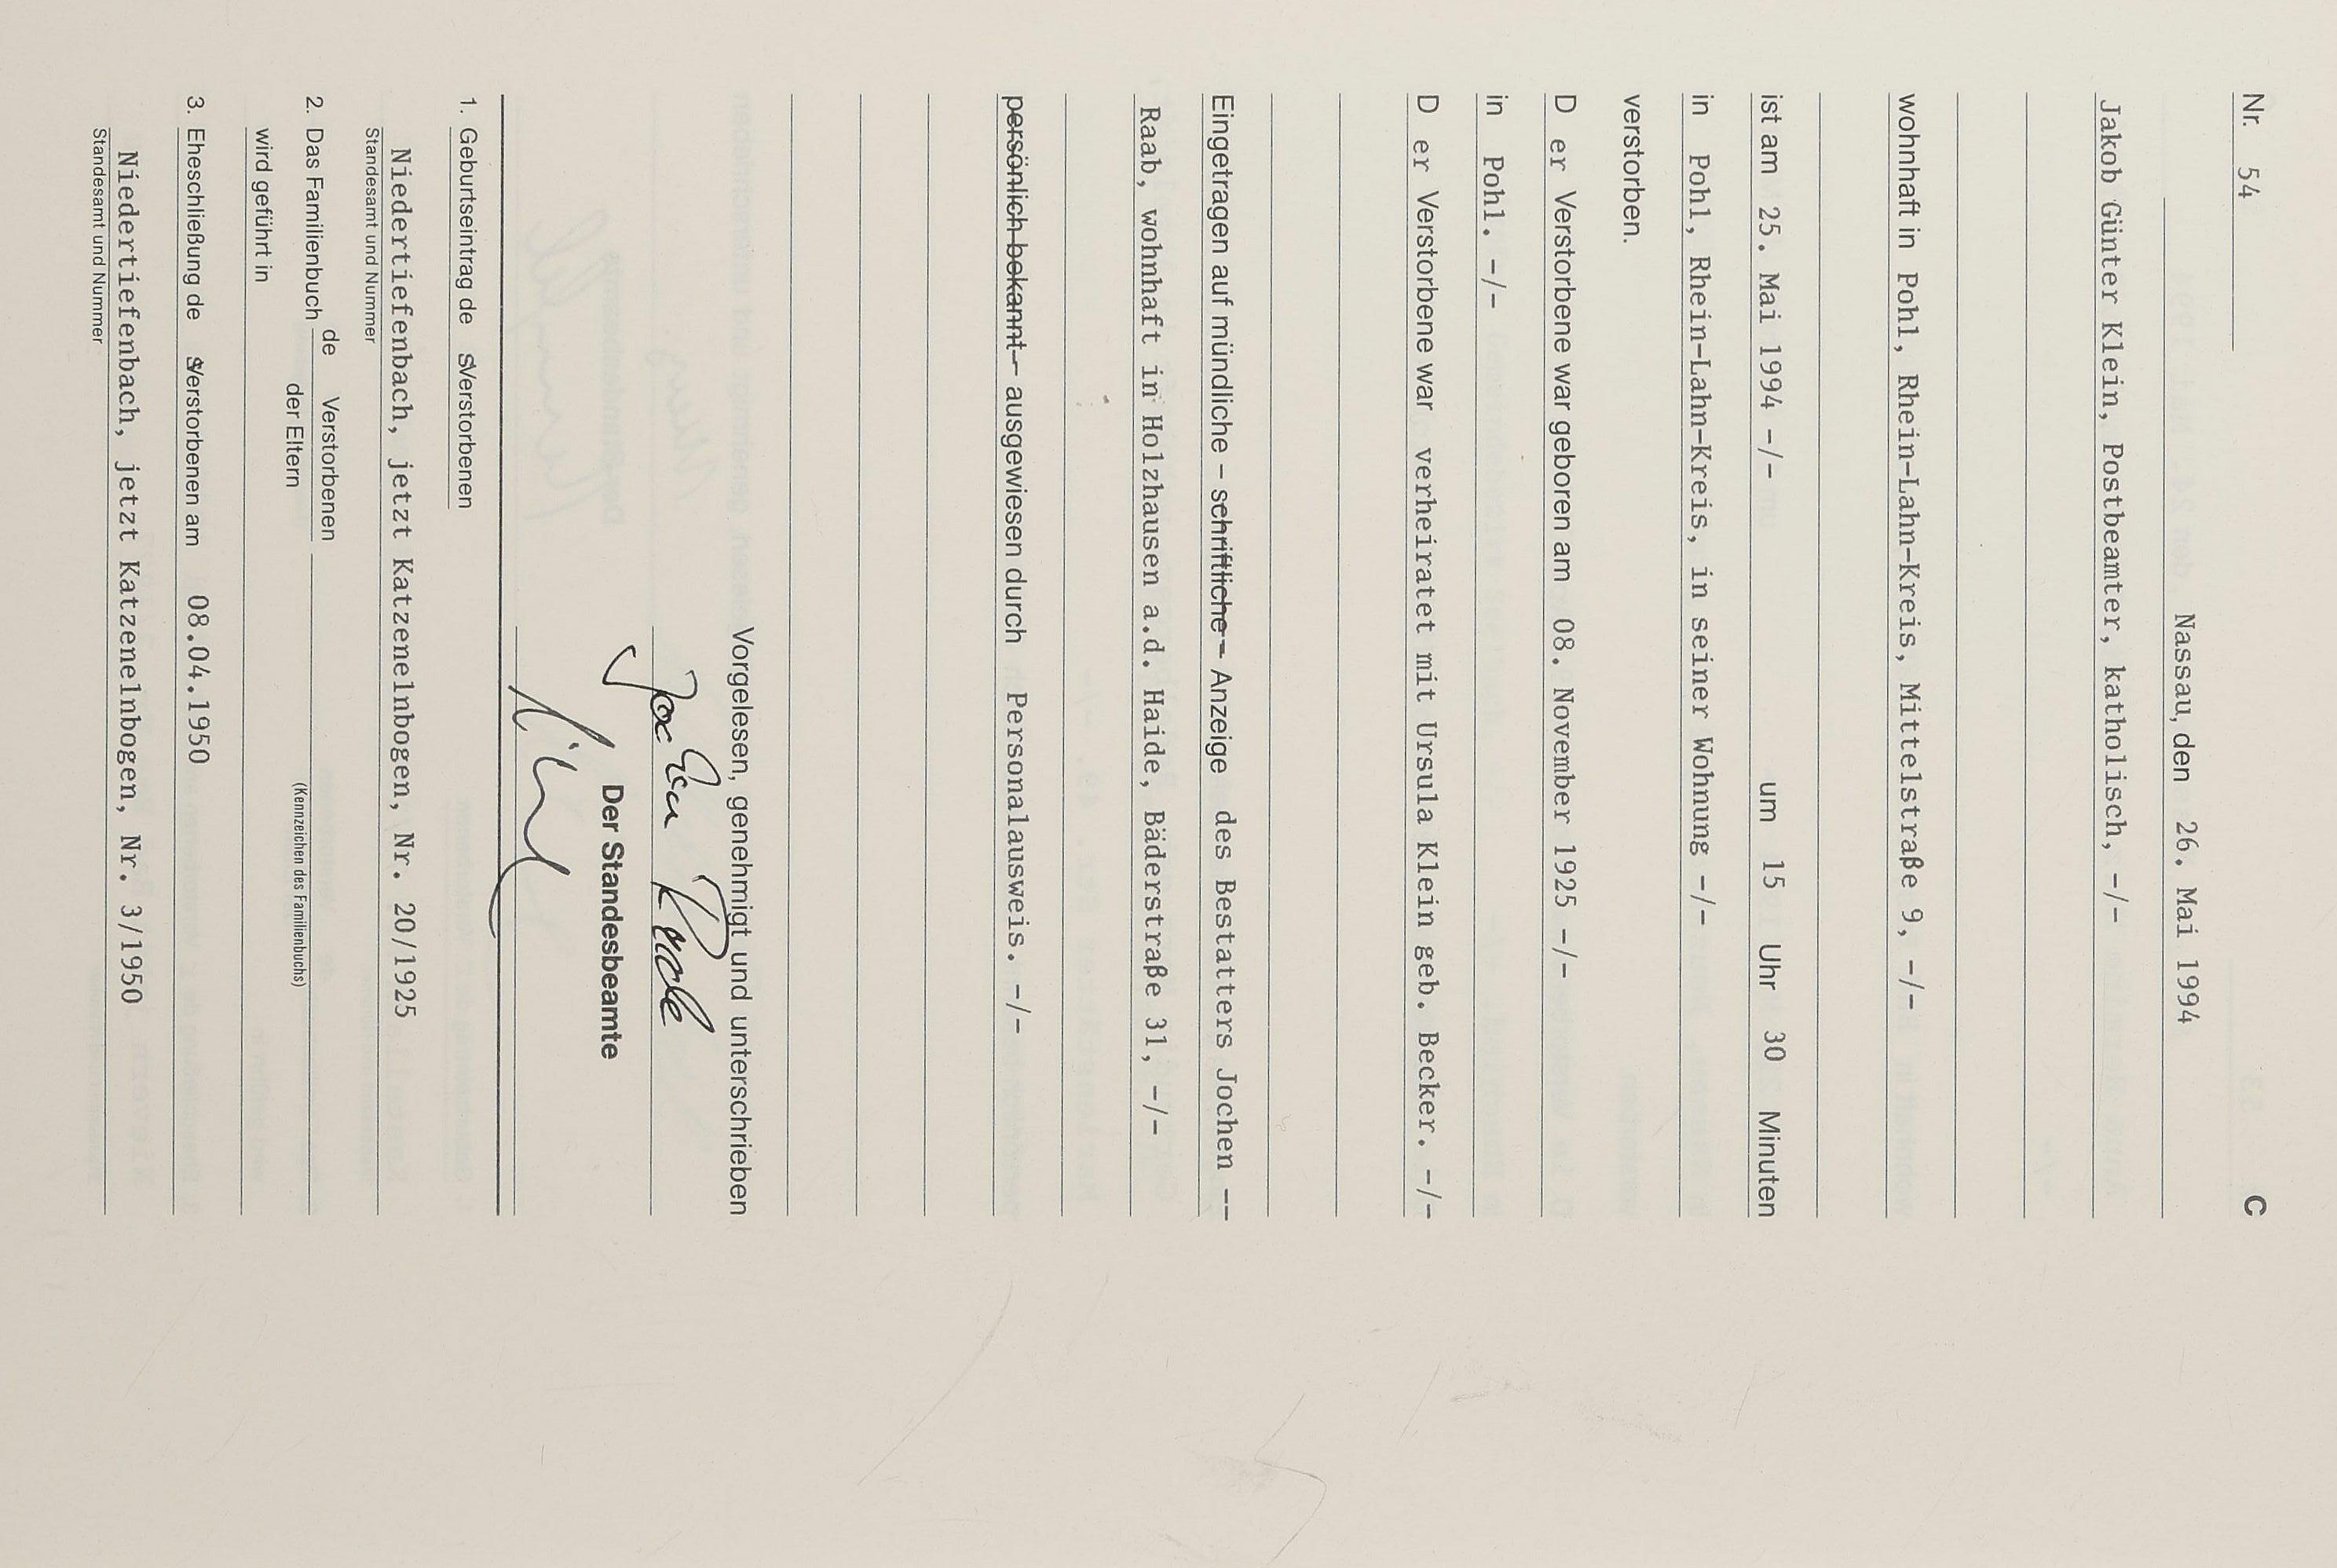 Nr. 54 C
Nassau, den 26. Mai 1994
Jakob Günter Klein, Postbeamter, katholisch, -/-
wohnhaft in Pohl, Rhein-Lahn-Kreis, Mittelstraße 9, -/-
ist am 25. Mai 1994 -/- um 15 Uhr 30 Minuten
in Pohl, Rhein-Lahn-Kreis, in seiner Wohnung -/-
verstorben.
D er Verstorbene war geboren am 08. November 1925 -/-
in Pohl. -/-
D er Verstorbene war verheiratet mit Ursula Klein geb. Becker. -/-
Eingetragen auf mündliche – schriftliche – Anzeige des Bestatters Jochen --
Raab, wohnhaft in Holzhausen a.d. Haide, Bäderstraße 31, -/-
persönlich bekannt – ausgewiesen durch Personalausweis. -/-
Vorgelesen, genehmigt und unterschrieben
Der Standesbeamte
1. Geburtseintrag de s Verstorbenen
Niedertiefenbach, jetzt Katzenelnbogen, Nr. 20/1925
Standesamt und Nummer
2. Das Familienbuch de Verstorbenen
der Eltern
(Kennzeichen des Familienbuchs)
wird geführt in
3. Eheschließung de s Verstorbenen am 08.04.1950
Niedertiefenbach, jetzt Katzenelnbogen, Nr. 3/1950
Standesamt und Nummer